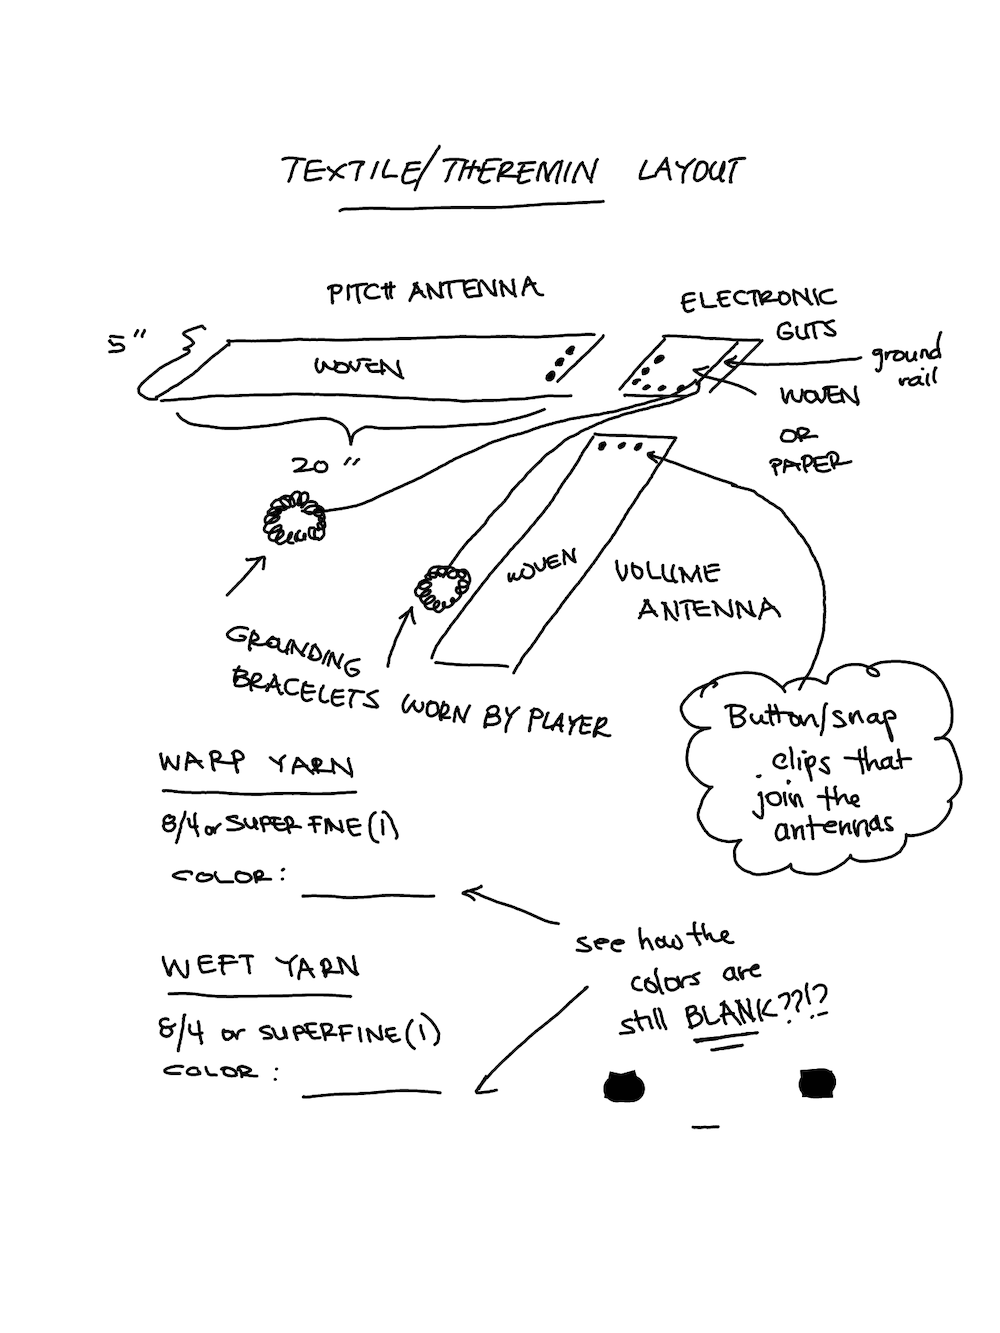 TEXTILE/THEREMIN LAYOUT
PITCH ANTENNA
5"
WOVEN
20"
ELECTRONIC
GUTS
ground
rail
WOVEN
OR
PAPER
WOVEN
VOLUME
ANTENNA
GROUNDING
BRACELETS WORN BY PLAYER
Button/snap
clips that
join the
antennas
WARP YARN
8/4 or SUPERFINE(1)
COLOR:
WEFT YARN
8/4 or SUPERFINE(1)
COLOR:
see how the
colors are
still BLANK??!?